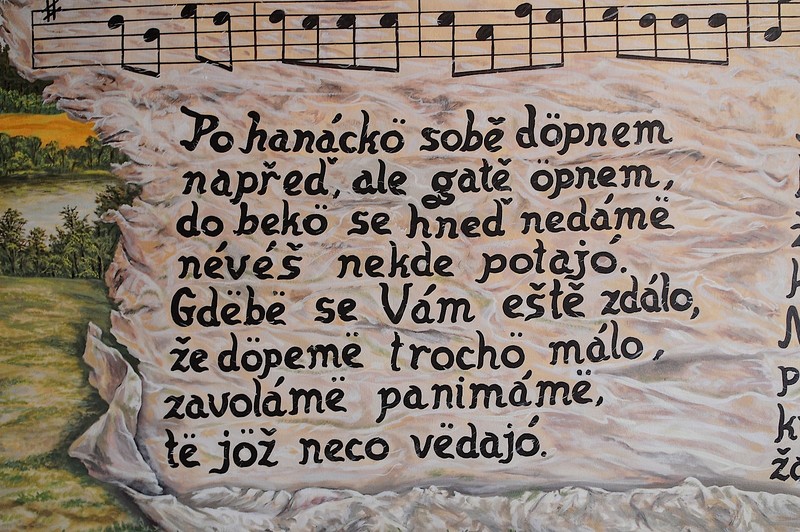 Po hanáckö sobě döpnem
napřeď, ale gatě öpnem,
do bekö se hneď nedámë
névéš nekde potajó.
Gdëbë se Vám eště zdálo,
že döpemë trochö málo,
zavolámë panimámë,
të jöž neco vëdajó.